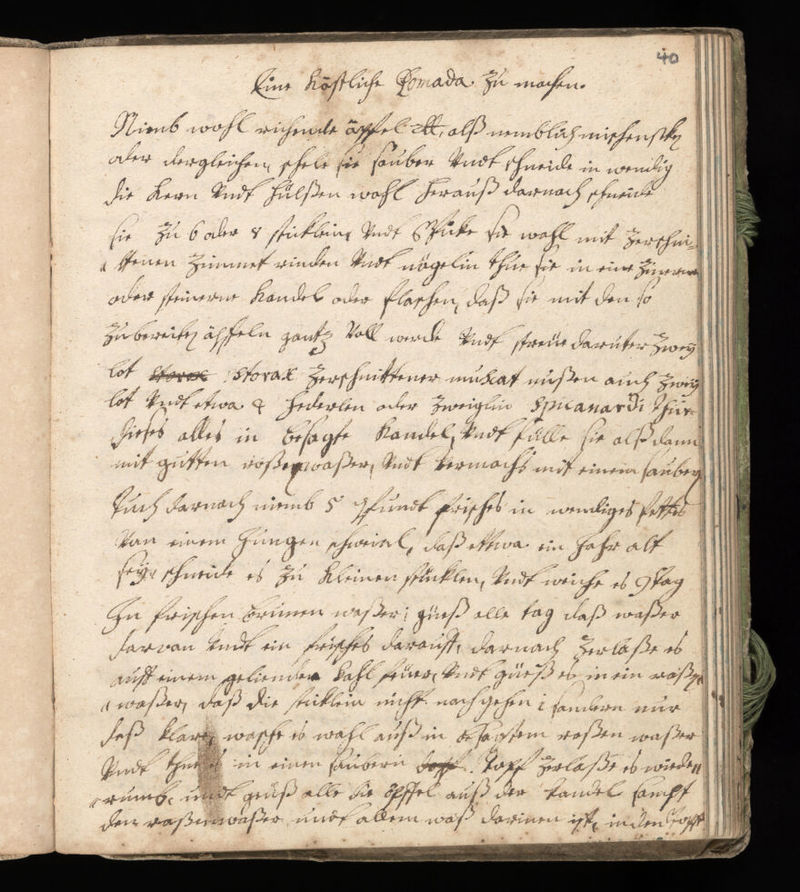 40
Eine köstliche Pomada zu machen.
Nimb wohl richende äpffel alß nemblich
oder dergleichen, schele sie sauber Undt schneide in wendig
die kern Undt hülßen wohl herauß darnach schneide
sie zu 6 oder 8 sticklein, Undt Spicke sie wohl mit zerschni-
ttenen Zimmet rinden Undt nägelin thue sie in eine
oder steinerne kandel oder flaschen, daß sie mit den so
zu bereiten äpffeln gantz Voll werde Undt streüe darunter zwey
lot storax zerschnittener muscat nußen auch zwey
lot Undt etwa 4 federlen oder zweiglin Spicanardi thue
dieses alles in besagte kandel, Undt fülle sie alß dann
mit gutten roßen waßer, Undt vermachs mit einem saubern
tuch darnach nimb 5 pfundt frisches in wendiges fettes
Van einem Jungen schweinl, daß ettwa ein Jahr alt
sey, schneide es zu kleinen stücklen, Undt weiche es 9 tag
In frischen brunen waßer; güeß alle tag daß waßer
darvan Undt ein frisches darauff, darnach zerlaße es
auff einem gelienden kohl feüer, Undt güeß es in ein roßen
waßer, daß die sticklein nicht nachgehen; sondern nur
daß klare, wasche es wohl auß in besagtem roßen waßer
Undt thue es in einen saubern topf zerlaße es wieder
rumb, undt geüß alle die öpffel auß der kandel sampt
dem roßenwaßer undt allem waß darinen ist, in den topff